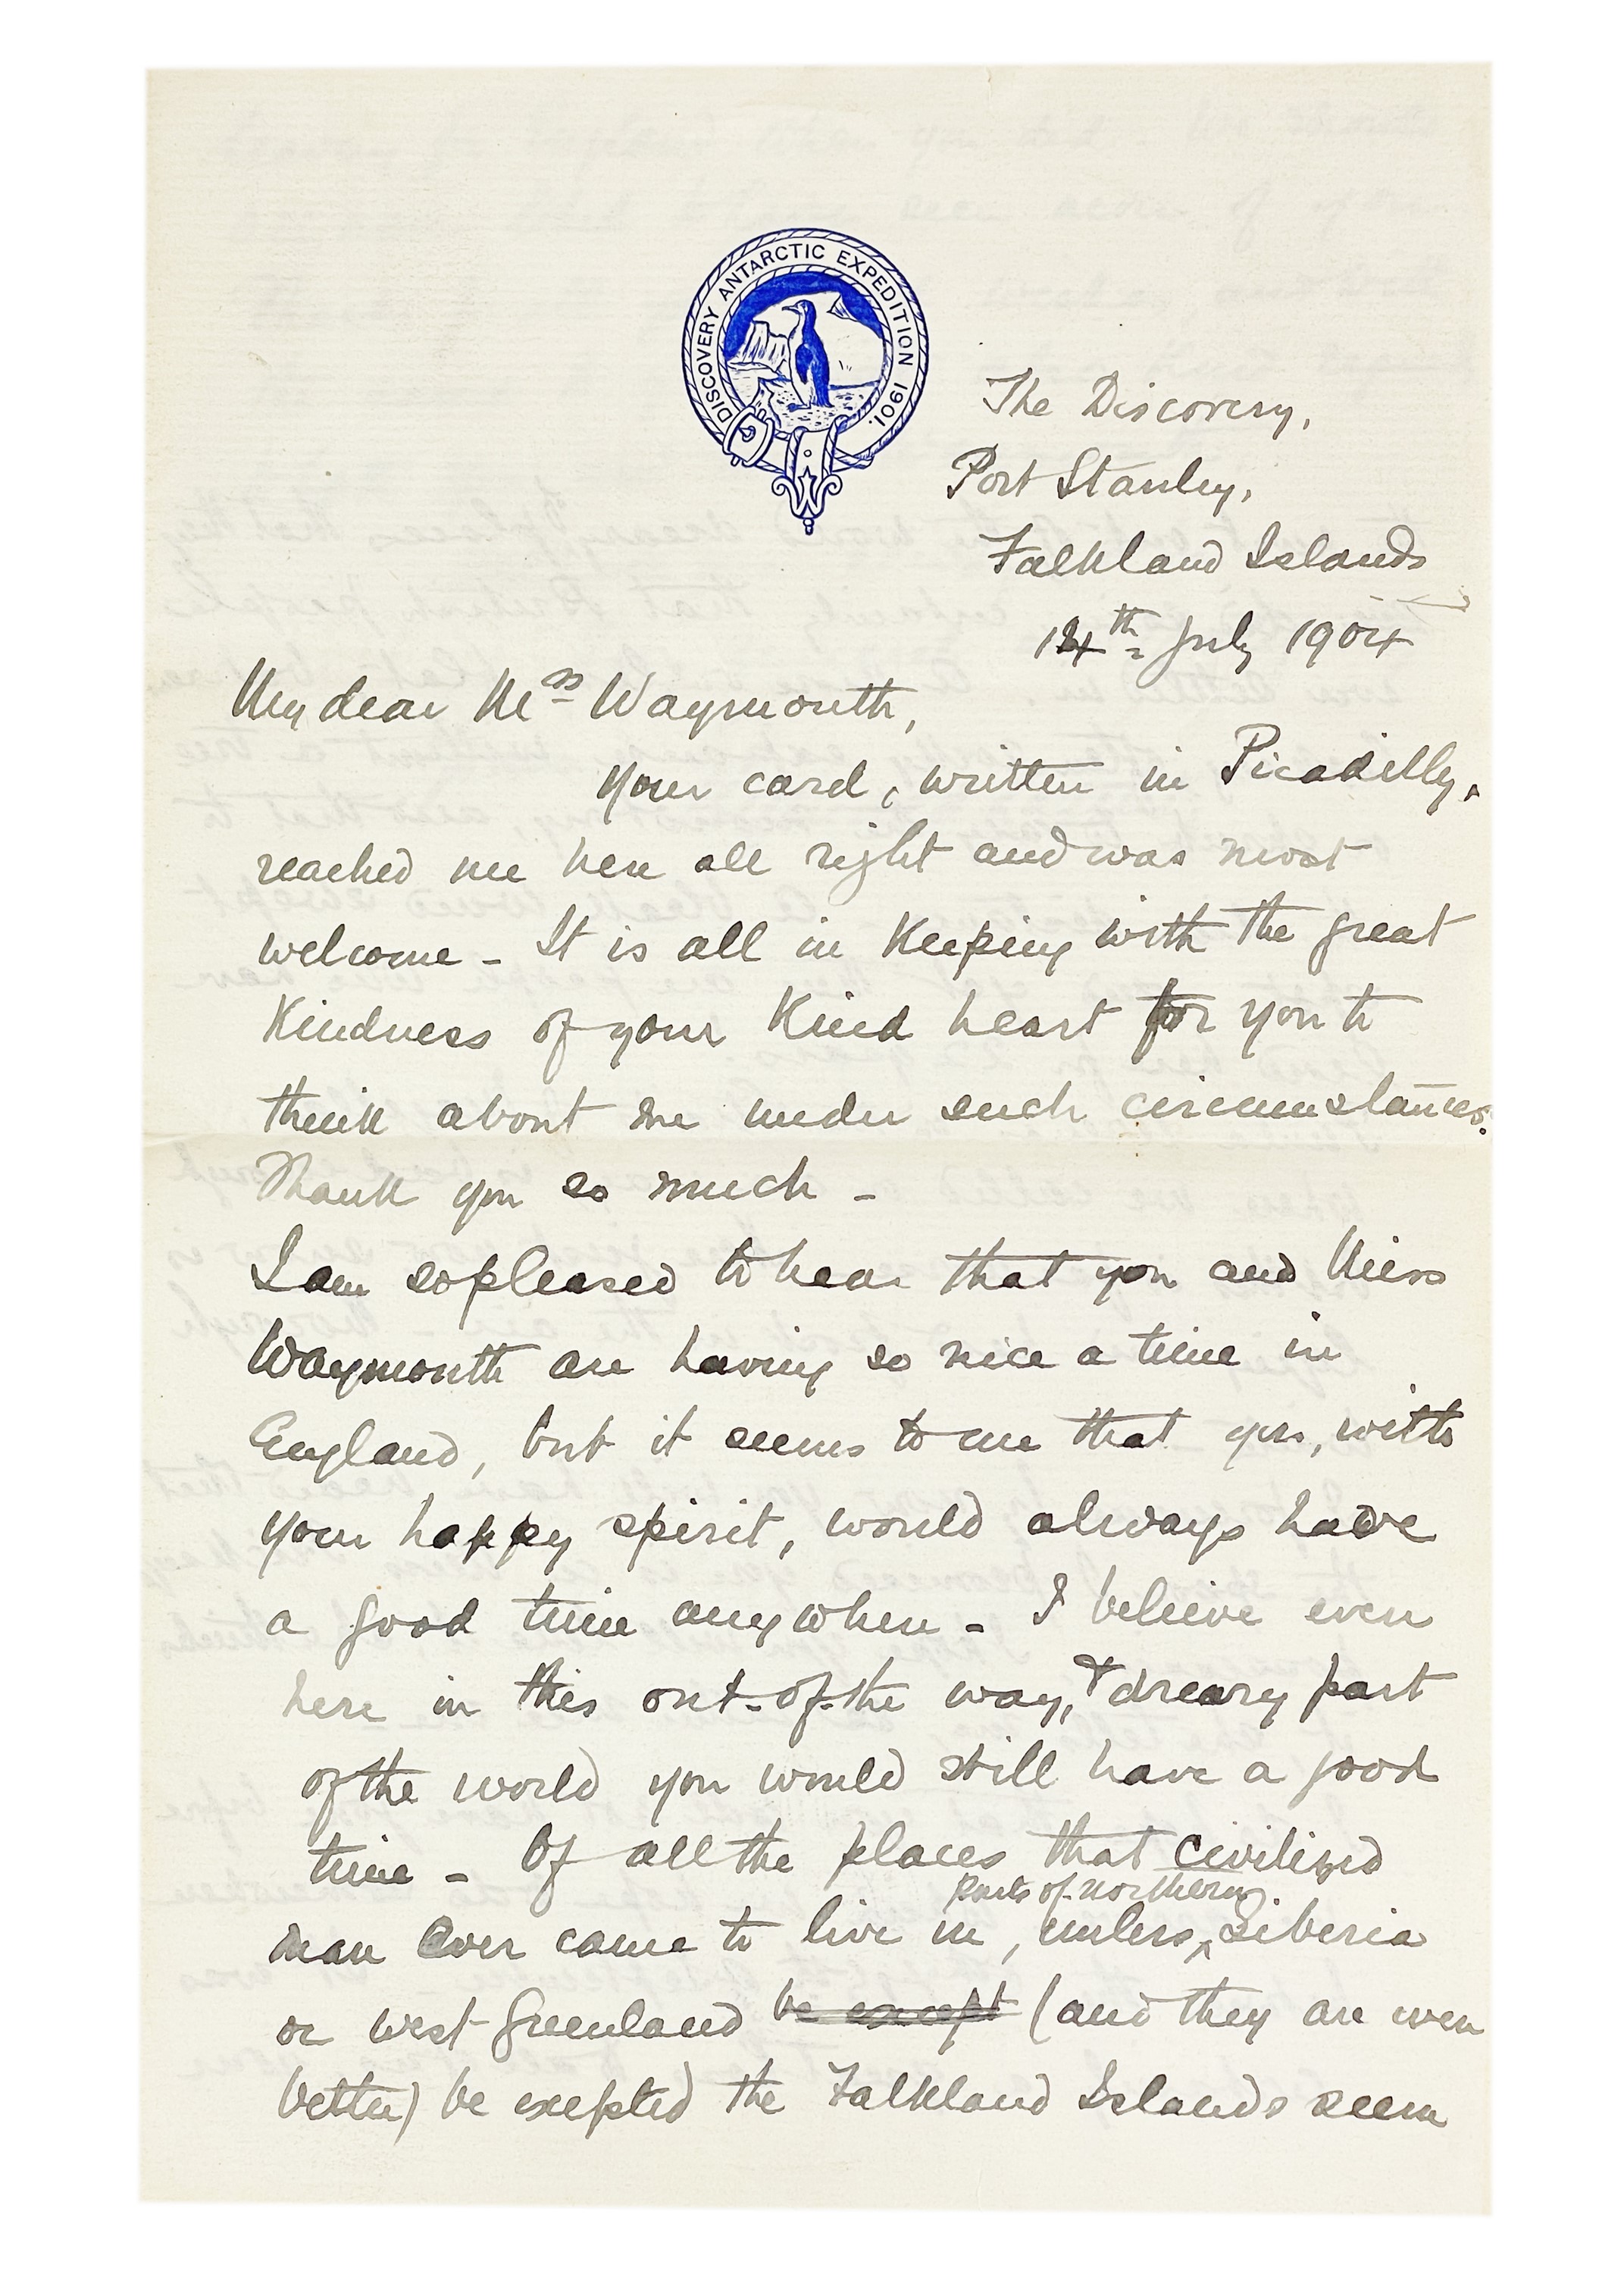 DISCOVERY ANTARCTIC EXPEDITION 1901.
The Discovery,
Port Stanley,
Falkland Islands
14th July 1904
My dear Mrs Waymouth,
Your card, written in Picadilly,
reached me here all right and was most
welcome - It is all in keeping with the great
Kindness of your Kind heart for you to
think about me under such circumstances.
Thank you so much -
I am so pleased to hear that you and Miss
Waymouth are having so nice a time in
England, but it seems to me that you, with
your happy spirit, would always have
a good time anywhere - I believe even
here in this out-of-the way, & dreary part
of the world you would still have a good
time - Of all the places that civilized
man ever came to live in, unless parts of northern Siberia
or west Greenland be except (and they are even
better) be excepted the Falkland Islands seem